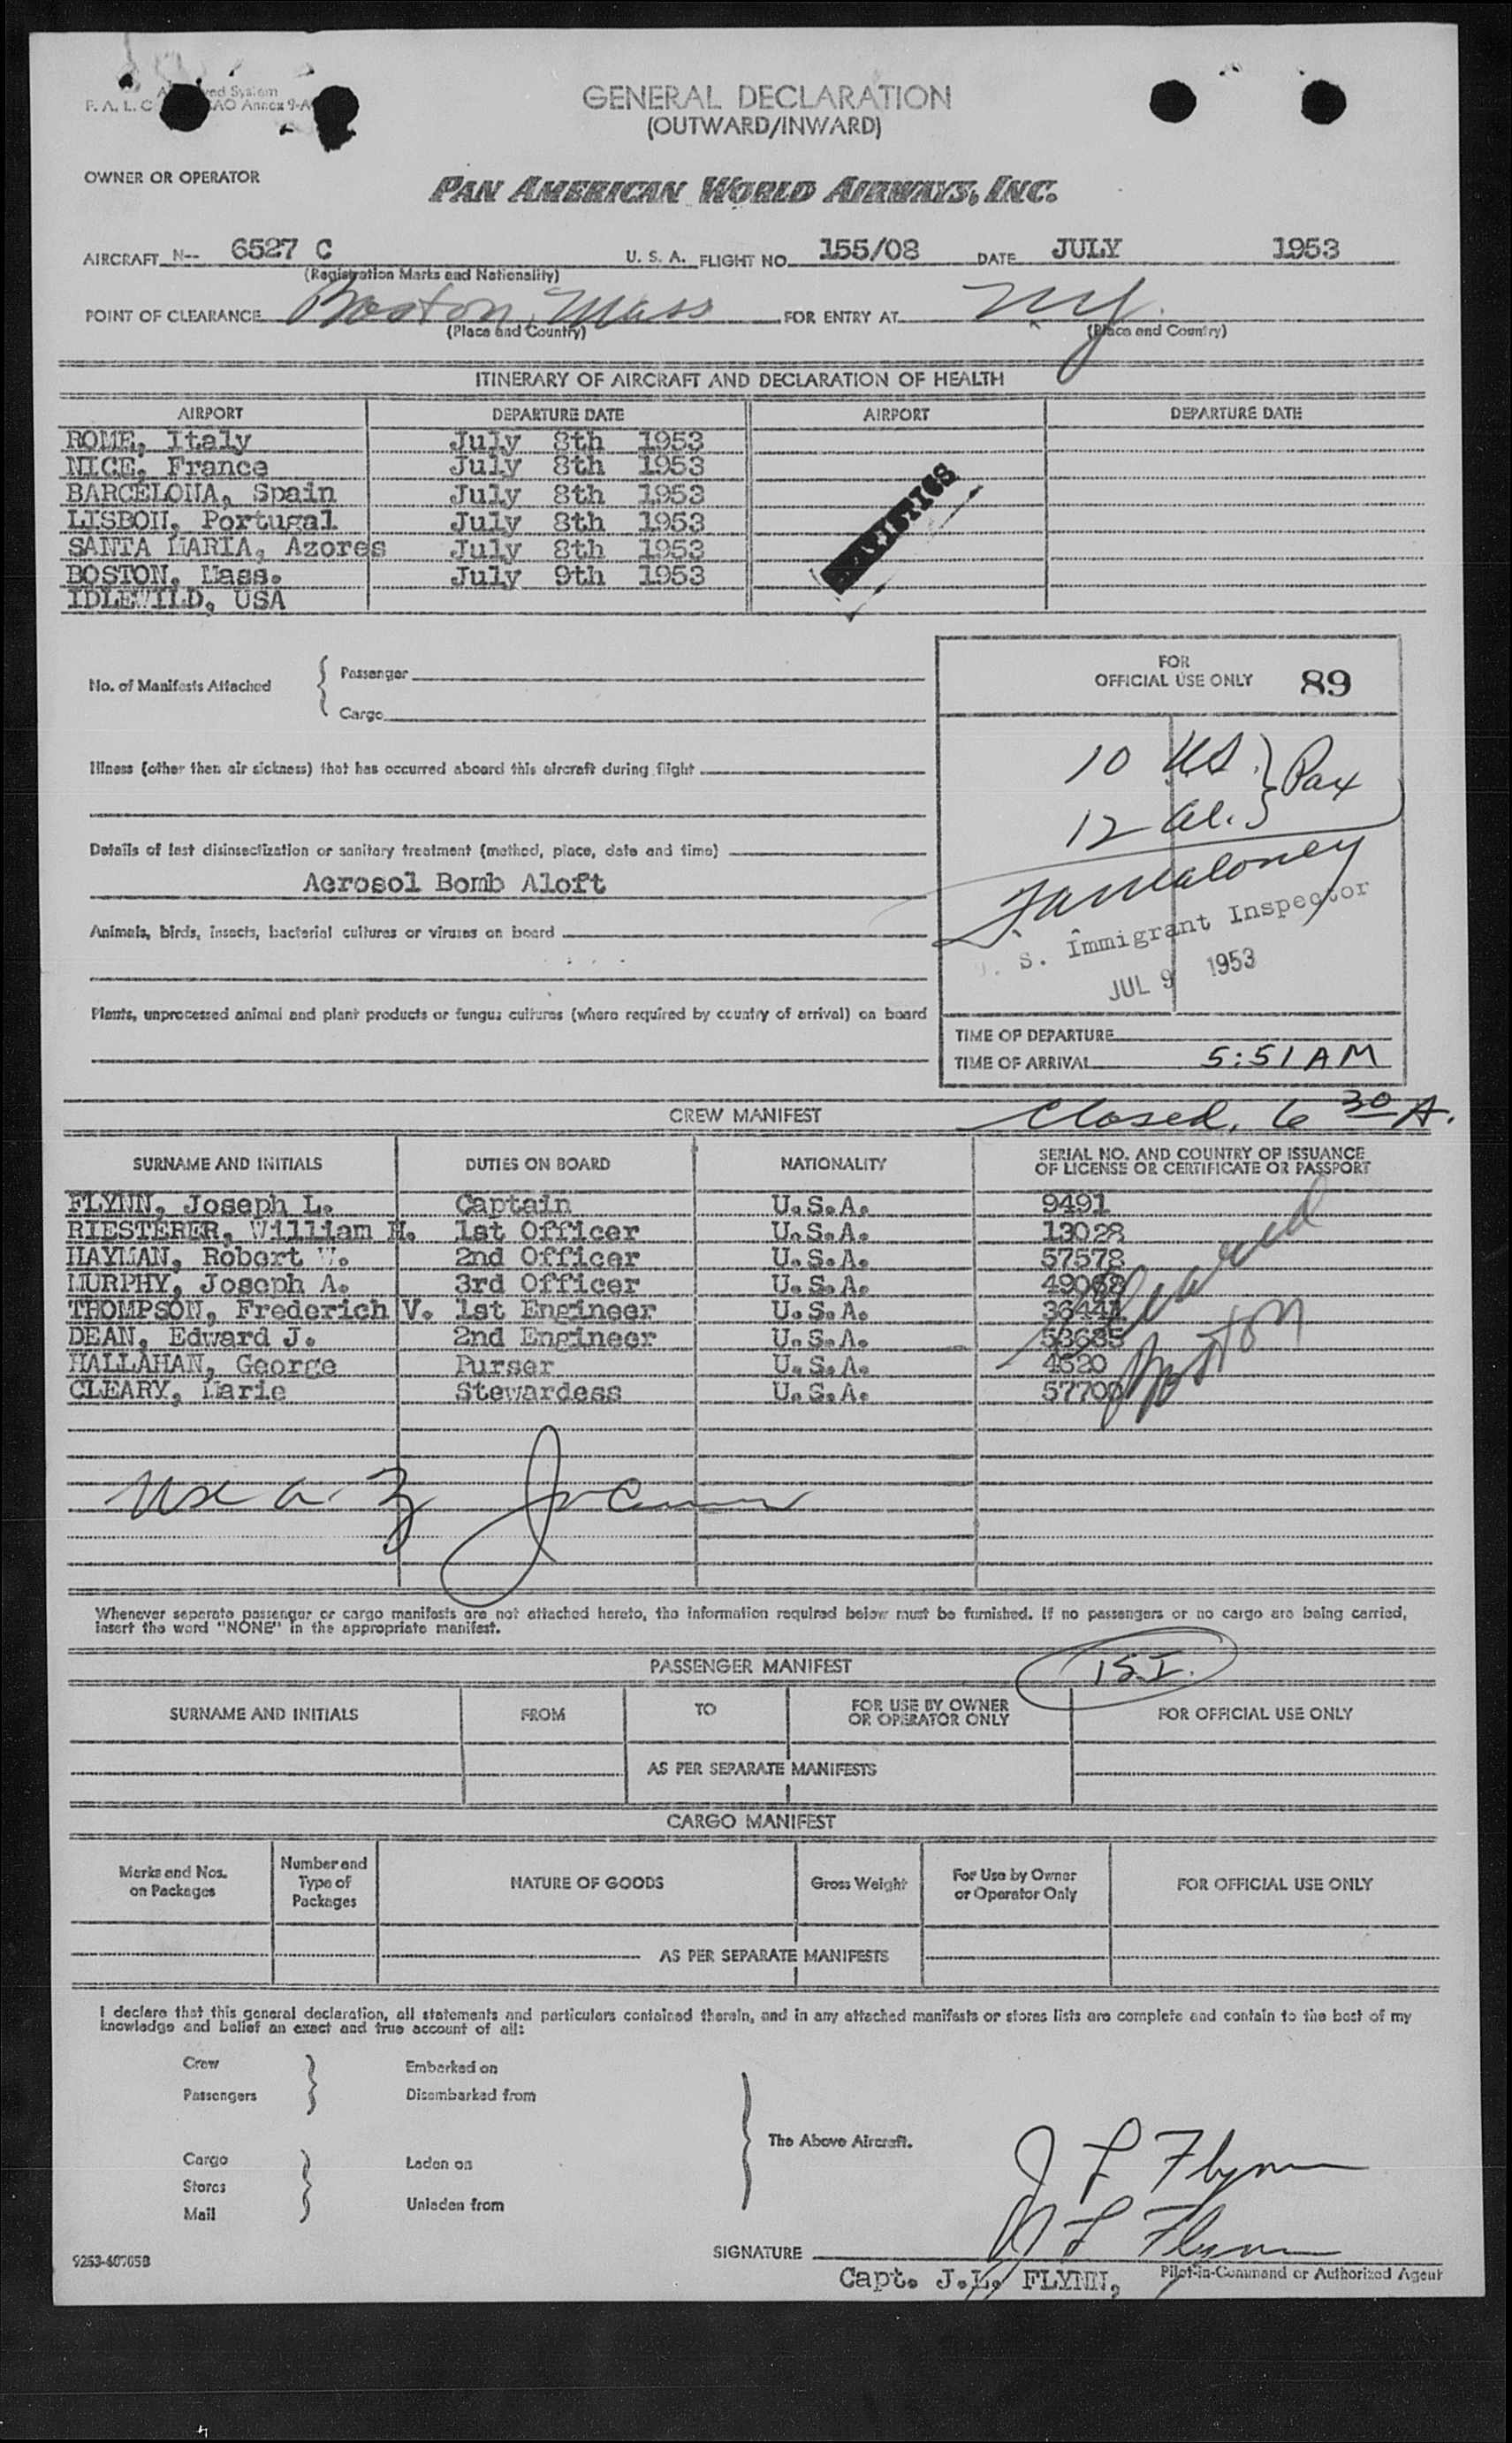 GENERAL DECLARATION
(OUTWARD/INWARD)
OWNER OR OPERATOR PAN AMERICAN WORLD AIRWAYS, INC.
AIRCRAFT N-- 6527 C U. S. A. FLIGHT NO. 155/08 DATE JULY 1953
(Registration Marks and Nationality)
POINT OF CLEARANCE Boston, Mass FOR ENTRY AT NY
(Place and Country) (Place and Country)
ITINERARY OF AIRCRAFT AND DECLARATION OF HEALTH
AIRPORT DEPARTURE DATE AIRPORT DEPARTURE DATE
ROME, Italy July 8th 1953
NICE, France July 8th 1953
BARCELONA, Spain July 8th 1953
LISBON, Portugal July 8th 1953
SANTA MARIA, Azores July 8th 1953
BOSTON, Mass. July 9th 1953
IDLEWILD, USA
STATISTICS
No. of Manifests Attached { Passenger
Cargo
Illness (other than air sickness) that has occurred aboard this aircraft during flight
Details of last disinsectization or sanitary treatment (method, place, date and time)
Aerosol Bomb Aloft
Animals, birds, insects, bacterial cultures or viruses on board
Plants, unprocessed animal and plant products or fungus cultures (where required by country of arrival) on board
FOR
OFFICIAL USE ONLY 89
10 US } Pax
12 al.
S. Immigrant Inspector
JUL 9 1953
TIME OF DEPARTURE
TIME OF ARRIVAL 5:51 AM
CREW MANIFEST Closed. 6 30 A.
SURNAME AND INITIALS DUTIES ON BOARD NATIONALITY SERIAL NO. AND COUNTRY OF ISSUANCE
OF LICENSE OR CERTIFICATE OR PASSPORT
FLYNN, Joseph L. Captain U.S.A. 9491
RIESTERER, William H. 1st Officer U.S.A. 13028
HAYMAN, Robert W. 2nd Officer U.S.A. 57578
MURPHY, Joseph A. 3rd Officer U.S.A. 49068
THOMPSON, Frederich V. 1st Engineer U.S.A. 36441
DEAN, Edward J. 2nd Engineer U.S.A. 53685
HALLAHAN, George Purser U.S.A. 4520
CLEARY, Marie Stewardess U.S.A. 57700
Cleared
Boston
Whenever separate passenger or cargo manifests are not attached hereto, the information required below must be furnished. If no passengers or no cargo are being carried,
insert the word "NONE" in the appropriate manifest.
PASSENGER MANIFEST
SURNAME AND INITIALS FROM TO FOR USE BY OWNER
OR OPERATOR ONLY FOR OFFICIAL USE ONLY
AS PER SEPARATE MANIFESTS
CARGO MANIFEST
Marks and Nos.
on Packages Number and
Type of
Packages NATURE OF GOODS Gross Weight For Use by Owner
or Operator Only FOR OFFICIAL USE ONLY
AS PER SEPARATE MANIFESTS
I declare that this general declaration, all statements and particulars contained therein, and in any attached manifests or stores lists are complete and contain to the best of my
knowledge and belief an exact and true account of all:
Crew Embarked on
Passengers Disembarked from
The Above Aircraft.
Cargo Laden on
Stores
Mail Unladen from
J L Flynn
J L Flynn
SIGNATURE
Capt. J.L. FLYNN, Pilot-in-Command or Authorized Agent